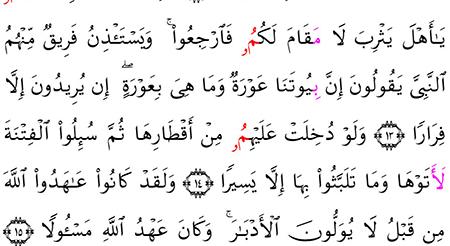 يَـٰٓأَهْلَ يَثْرِبَ لَا مَقَامَ لَكُمُۥ فَٱرْجِعُوا۟ ۚ وَيَسْتَـْٔذِنُ فَرِيقٌ مِّنْهُمُ
ٱلنَّبِىَّ يَقُولُونَ إِنَّ بِيُوتَنَا عَوْرَةٌ وَمَا هِىَ بِعَوْرَةٍ ۖ إِن يُرِيدُونَ إِلَّا
فِرَارًا ١٣ وَلَوْ دُخِلَتْ عَلَيْهِمُۥ مِنْ أَقْطَارِهَا ثُمَّ سُئِلُوا۟ ٱلْفِتْنَةَ
لَأَتَوْهَا وَمَا تَلَبَّثُوا۟ بِهَآ إِلَّا يَسِيرًا ١٤ وَلَقَدْ كَانُوا۟ عَـٰهَدُوا۟ ٱللَّهَ
مِن قَبْلُ لَا يُوَلُّونَ ٱلْأَدْبَـٰرَ ۚ وَكَانَ عَهْدُ ٱللَّهِ مَسْـُٔولًا ١٥